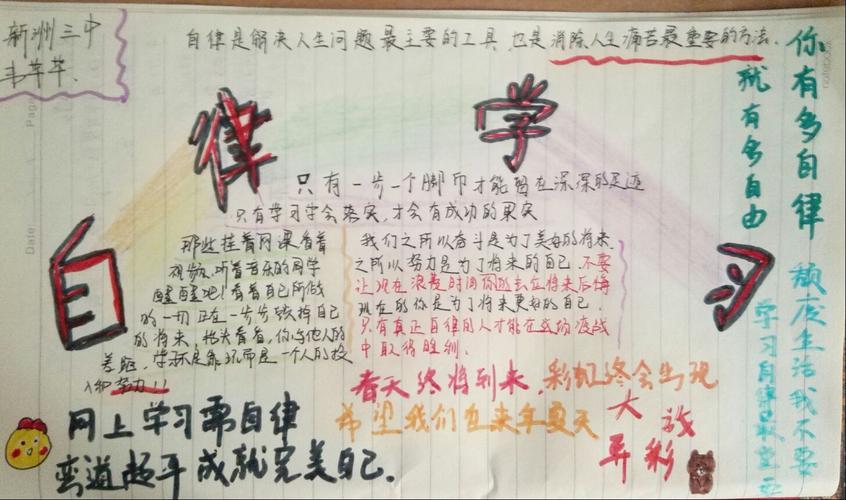 新洲三中
自律是解决人生问题最主要的工具,也是消除人生痛苦最重要的方法.
自律学习
只有一步一个脚印才能留在深深的足迹
只有学习学会落实,才会有成功的果实
那些挂着网课看着
视频、听着音乐的同学
醒醒吧!看着自己所做
的一切正在一步步毁掉自己
的将来,抬头看看,你与他人的
差距,学环是靠
入和努力!!
我们之所以奋斗是为了美好的将来.
之所以努力是为了将来的自己.不要
让现在浪费时间的你去在将来后悔
现在的你是为了将来更好的自己.
只有真正自律的人才能在这场疫战
中取得胜利.
春天终将到来,彩虹终会出现
希望我们在来年夏天
大放
异彩
网上学习需自律
弯道超车成就完美自己.
你有多自律
就有多自由
颓废生活我不要
学习自律最重要
notebook
Page
Date